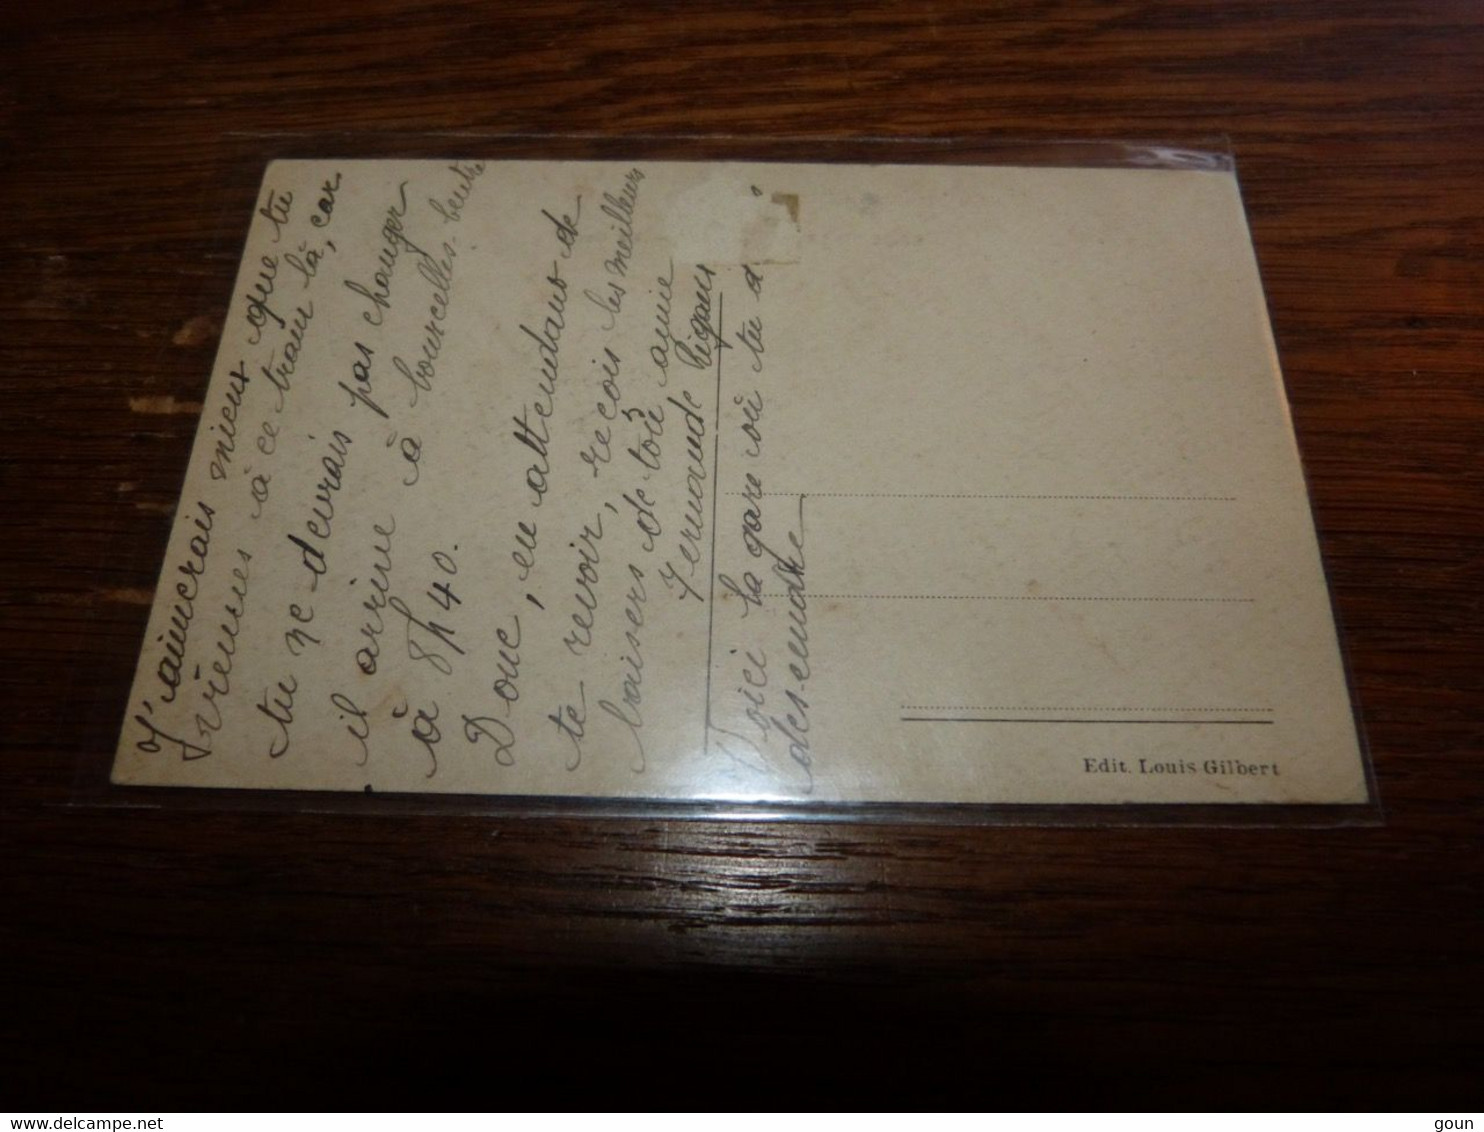 J'aimerais mieux que tu
viennes à ce train là, car
tu ne devrais pas changer
il arrive à bourcelles-centre
à 8h40.
Donc, en attendant de
te revoir, reçois les meilleurs
baisers de toù amie
Fernande
Voici la gare où tu d
descendre
Edit. Louis Gilbert
delcampe.net
goun